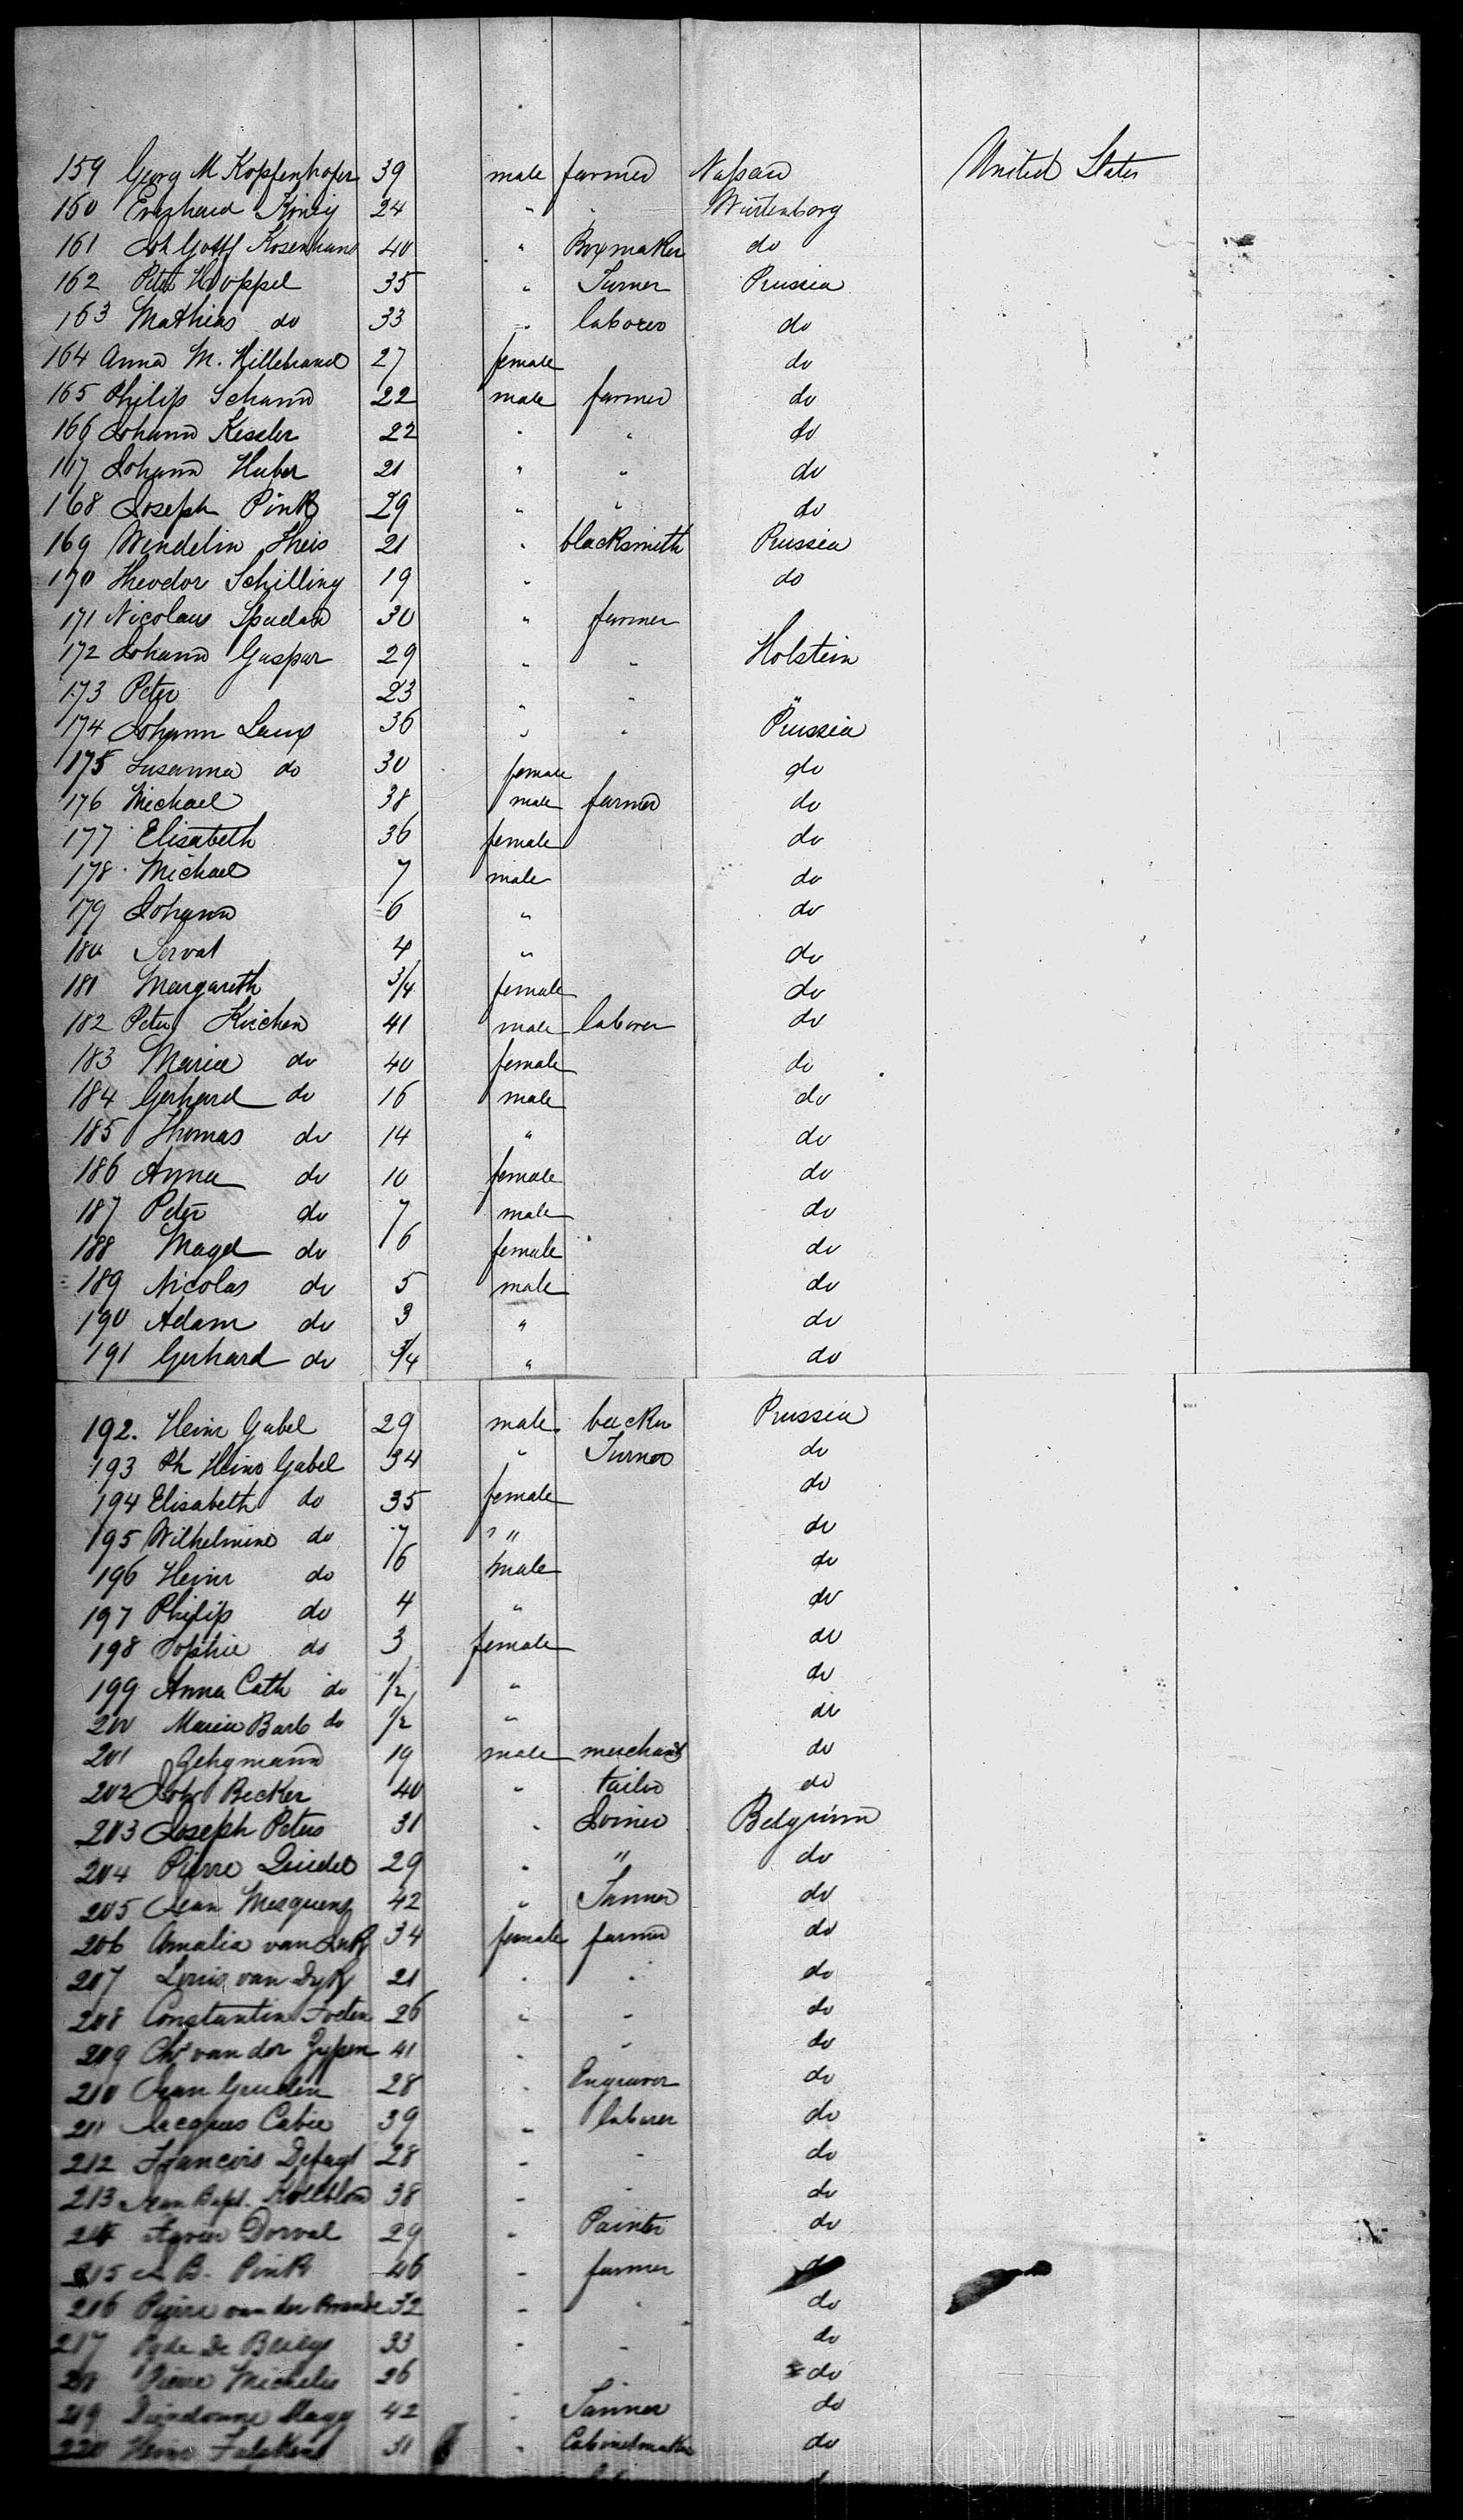 159 Georg M Kopfenhofer 39 male farmer Nassau United States
160 Everhard König 24 " " Würtenborg
161 Joh Gottf Rosenhane 40 " Boxmaker do
162 Peter Hoppel 35 " Turner Prussia
163 Mathias do 33 " laborer do
164 Anna M. Hillebrand 27 female do
165 Philip Schann 22 male farmer do
166 Johann Kessler 22 " " do
167 Johann Huber 21 " " do
168 Joseph Pink 29 " " do
169 Wendelin Theis 21 " blacksmith Prussia
170 Theodor Schilling 19 " do
171 Nicolaus Spudad 30 " farmer
172 Johann Gaspar 29 " " Holstein
173 Peter 23 " " "
174 Johann Laux 36 " " Prussia
175 Susanna do 30 female do
176 Michael 38 male farmer do
177 Elisabeth 36 female do
178 Michael 7 male do
179 Johann 6 " do
180 Servat 4 " do
181 Margareth 3/4 female do
182 Peter Kirchen 41 male laborer do
183 Maria do 40 female do
184 Gerhard do 16 male do
185 Thomas do 14 " do
186 Anna do 10 female do
187 Peter do 7 male do
188 Magd do 6 female do
189 Nicolas do 5 male do
190 Adam do 3 " do
191 Gerhard do 3/4 " do
192. Heinr Gabel 29 male backer Prussia
193 Ph Heinr Gabel 34 " Turner do
194 Elisabeth do 35 female do
195 Wilhelmine do 7 " " do
196 Heinr do 6 male do
197 Philip do 4 " do
198 Sophie do 3 female do
199 Anna Cath do 1/2 " do
200 Maria Barb do 1/2 " do
201 Gehgmann 19 male merchant do
202 Joh Becker 40 " tailor do
203 Joseph Peters 31 " Joiner Belgium
204 Pierre 29 " " do
205 Jean 42 " Tanner do
206 Amalia van 34 female farmer do
207 Louis van Dyk 21 " " do
208 Constantin 26 " - do
209 Chr van der Zypen 41 " " do
210 Jean 28 " Engraver do
211 Jacques 39 " laborer do
212 Francois 28 " - do
213 Jean Bapt. 38 " - do
214 Dorval 29 " Painter do
215 J B. Pink 46 " farmer do
216 van der 32 " " do
217 De 33 " - do
218 Pierre Michelis 26 " do
219 42 " Tanner do
220 Heinr 31 " Cabinetmaker do